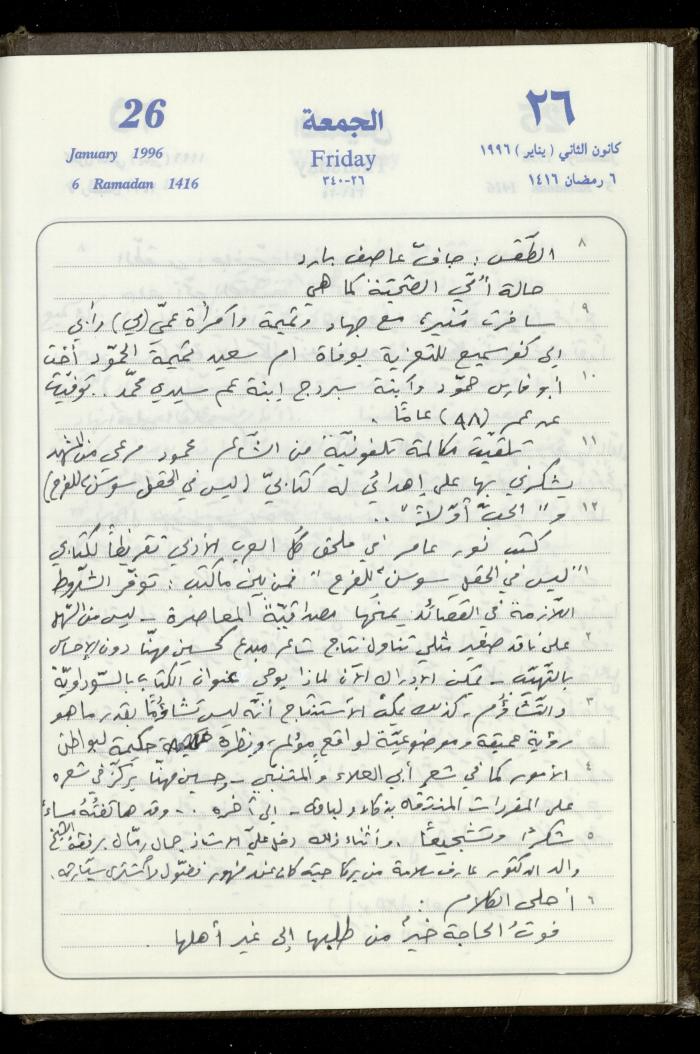 26
الجمعة
٢٦
January 1996
Friday
كانون الثاني ( يناير ) ١٩٩٦
6 Ramadan 1416
٢٦-٣٤٠
٦ رمضان ١٤١٦
٨ الطّقس : جافّ عاصف بارد
حالة أمّي الصّحيّة كما هي
٩ سافرت منيرة مع جهاد وتميمة وامرأة عمّي (مي) وابي
إلى كفرسميع للتعزية بوفاة ام سعيد تميمة الحمّود أخت
١٠ أبو فارس حمّود وابنة عم سيدي محمّد .. توفّيت
عن عمر (٩٨) عامًا .
١١ تلقيّت مكالمة تلفونيّة من الشّاعر محمود مرعي من المشهد
يشكرني بها على إهدائي له كتابيّ (ليس في الحقل سوسن للفرح)
١٢ و" الحبّ أوّلاً " ..
كتب نور عامر في ملحق كل العرب الأدبي تقريظًا لكتابي
١ "ليس في الحقل سوسن للفرح" فمن بين ما كتب : توفّر الشّروط
اللّازمة في القصائد يمنحها مصداقيّة المعاصرة - ليس من السّهل
٢ على ناقد صغير مثلي تناول نتاج شاعر مبدع كحسين مهنّا دون الإحساس
بالتّهيّب - يمكن الإدراك الآن لماذا يوحي عنوان الكتاب بالسّوداويّة
٣ والتّشاؤم ، كذلك يمكن الاستنتاج أنّه ليس تشاؤمًا بقدر ما هو
رؤية عميقة وموضوعيّة لواقع مؤلم ، ونظرة حكيمة لبواطن
٤ الأمور كما في شعر أبي العلاء والمتنبي - وحسين مهنّا يركّز في شعره
على المفردات المنتقاه بذكاء ولباقه - إلى آخره .. وقد هاتفتُهُ مساءً
٥ شكرًا وتشجيعًا . وأثناء ذلك دخل عليّ الاستاذ جمال رنّال برفقة الشيخ
والد الدكتور عارف سلامة من يركا حيث كان عند منهور لأشتري سيّارته .
٦ أحلى الكلام :
فوتُ الحاجة خيرٌ من طلبها إلى غير أهلها .